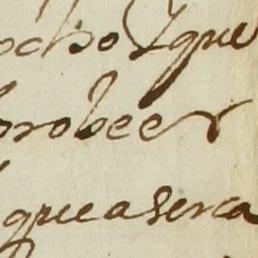 ocho Y que
probeer
que aserca